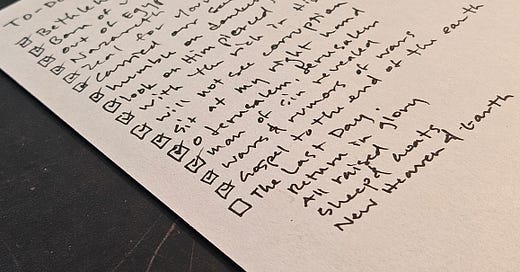 TO-DO
Bethlehem
Born of
out of Egypt
Nazareth
Zeal for
carried our
humble on donkey
look on Him pierced
with the rich in His
will not see corruption
sit at my right hand
O Jerusalem, Jerusalem
man of sin revealed
wars & rumors of wars
Gospel to the end of the earth
The Last Day.
Return in glory
All raised
Sheep & Goats
New Heaven & Earth